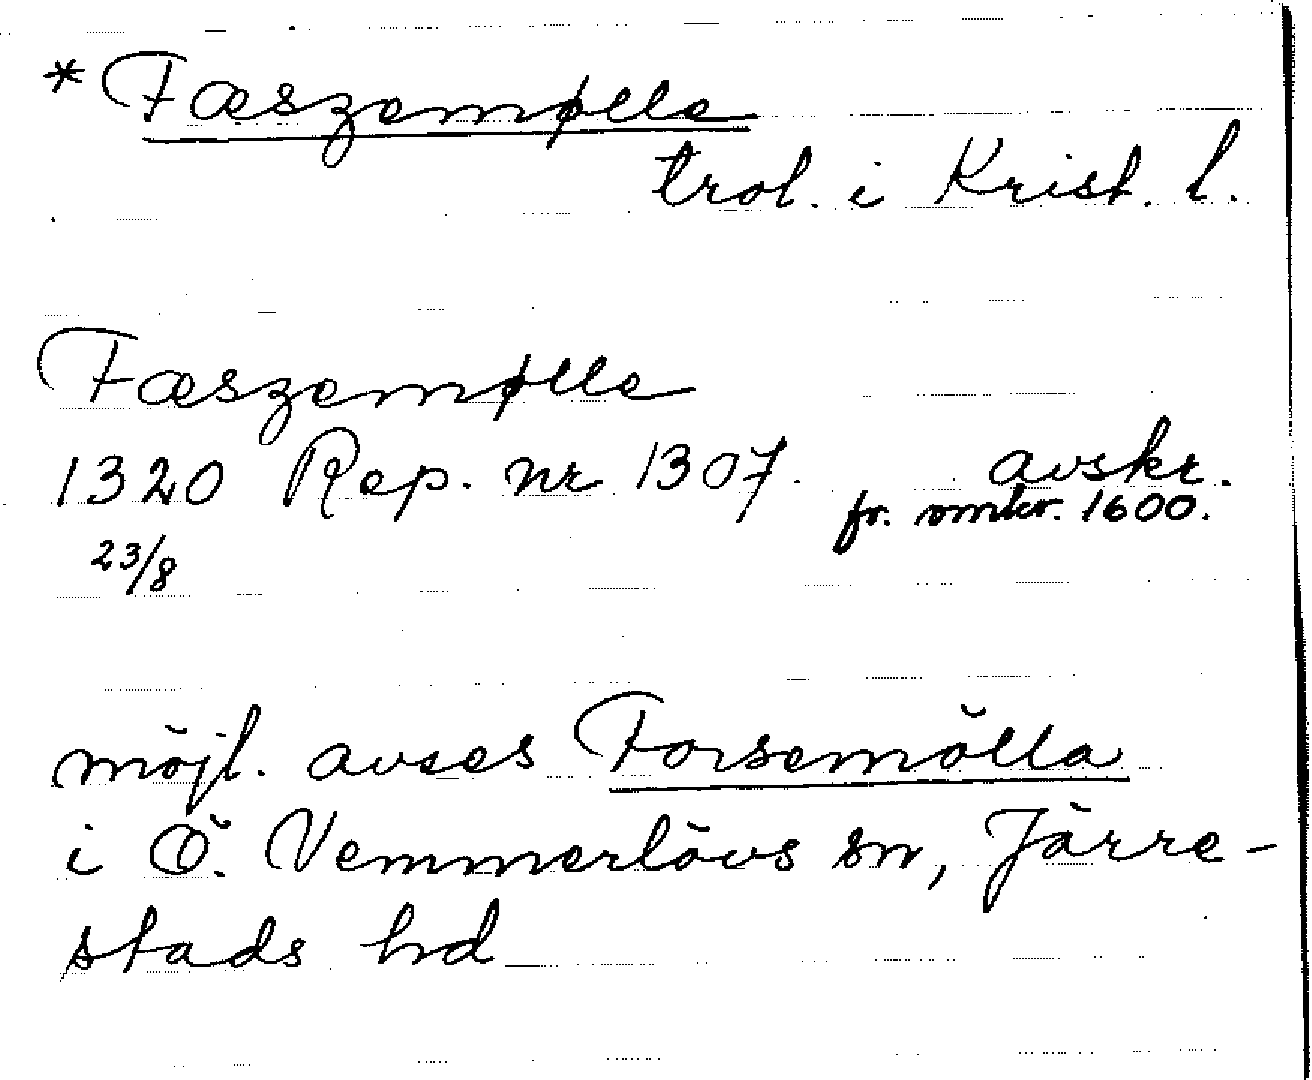 *Fæszemølle
trol. i Krist. l.
Fæszemølle
1320 Rep. nr 1307. avskr.
fr. omkr. 1600.
23/8
möjl. avses Forsemölla
i Ö. Vemmerlövs sn, Järre-
stads hd